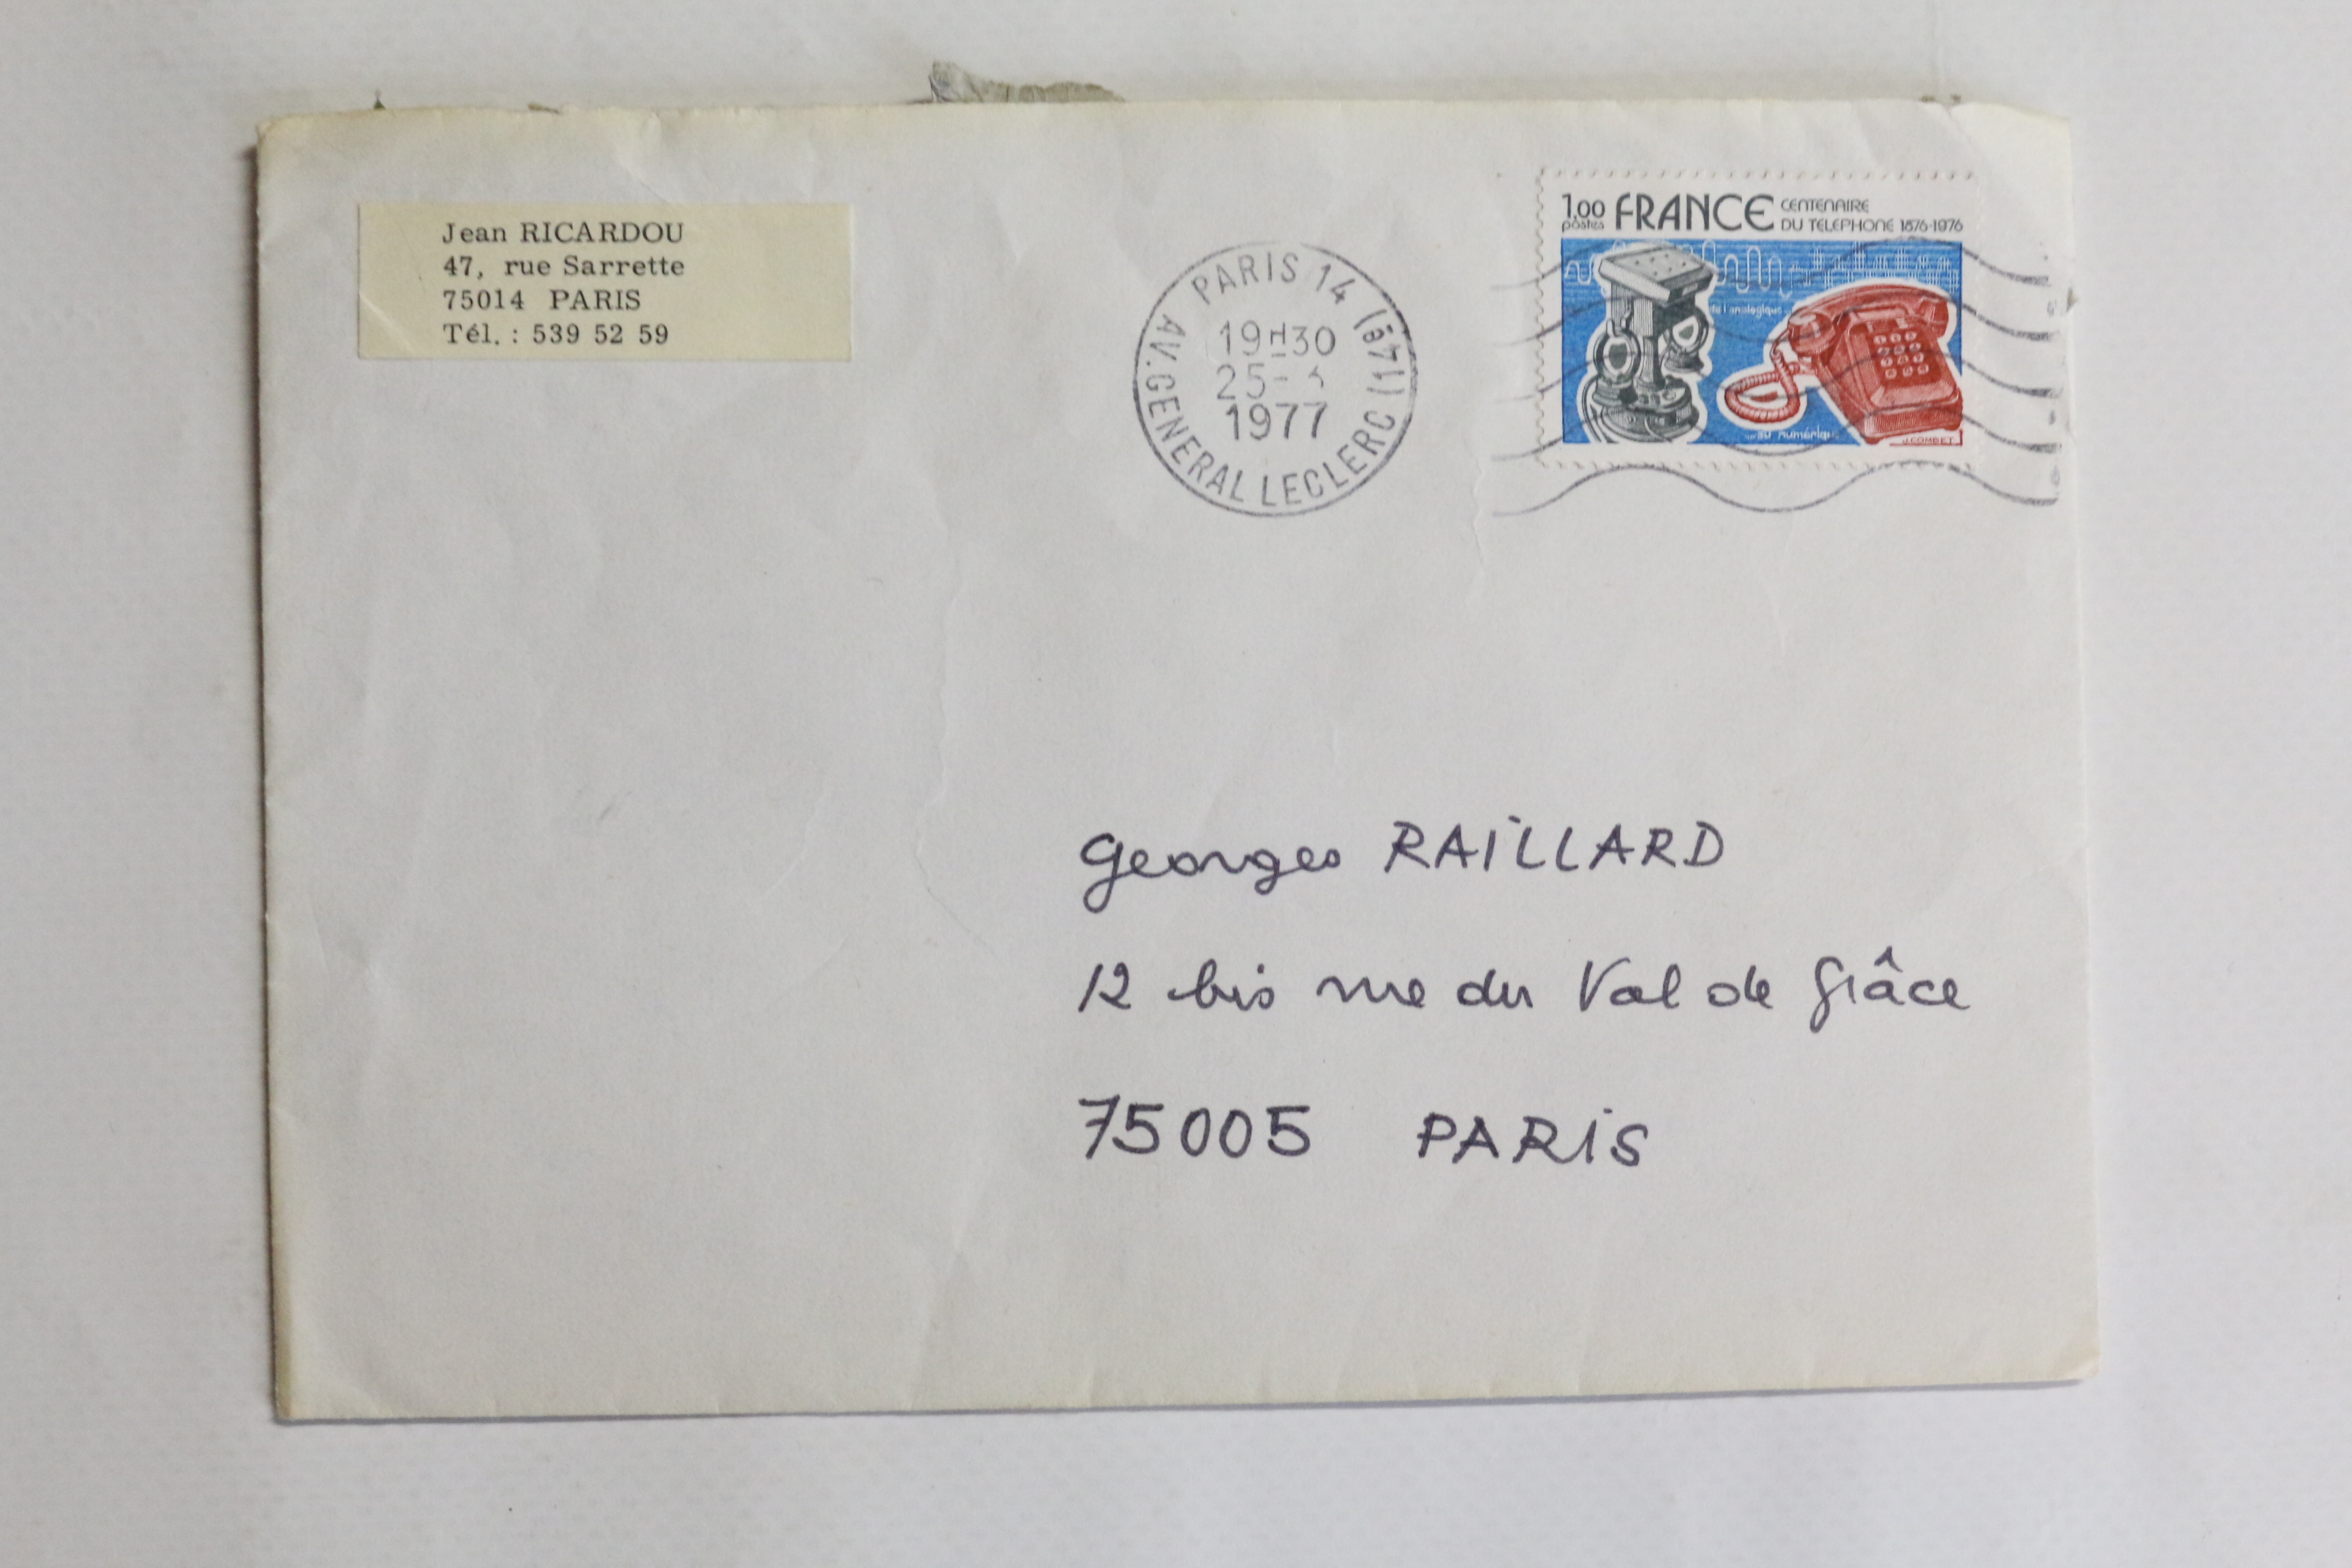 Jean RICARDOU
47, rue Sarrette
75014 PARIS
Tél. : 539 52 59
PARIS 14 (14è)
AV. GENERAL LECLERC
19H30
25-
1977
1,00
postes
FRANCE
CENTENAIRE
DU TELEPHONE 1876-1976
analogique...
...au numérique
J.COMBET
Georges RAILLARD
12 bis rue du Val de Grâce
75005 PARIS